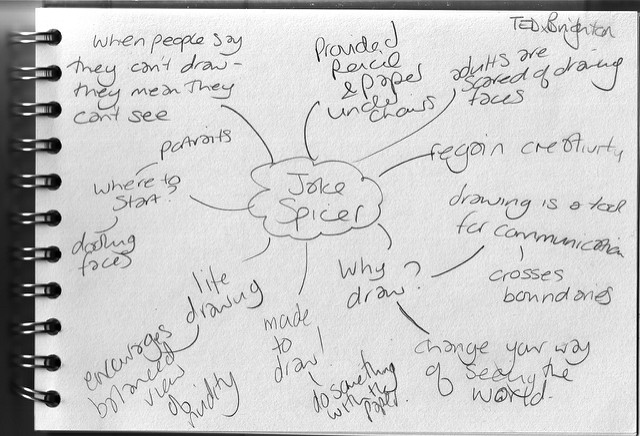 TEDxBrighton
When people say
they can't draw -
they mean they
can't see
Provided
pencil
& paper
under
chairs
adults are
scared of drawing
faces
regain creativity
portraits
where to
start?
doodling
faces
Jake
Spicer
drawing is a tool
for communication
crosses
boundaries
Why
draw?
change your way
of seeing the
world.
life
drawing
encourages
balanced
view
of nudity
made
to
draw!
do something
with the
paper.